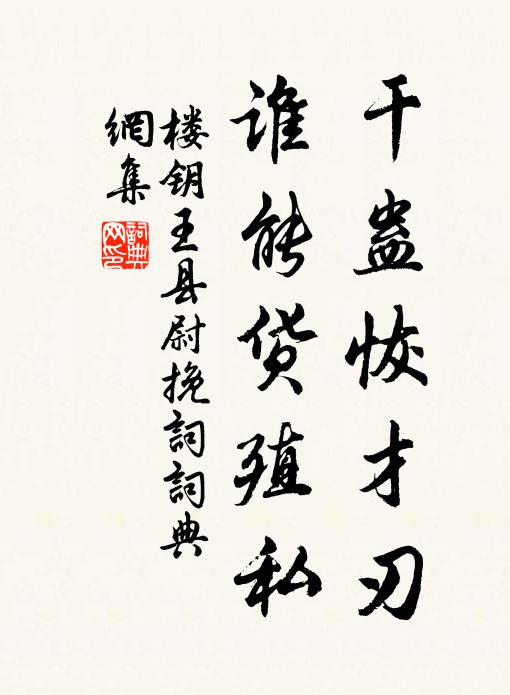 干蛊恢才刃
谁能货殖私
楼钥王县尉挽詞詞典
網集
詞典网印